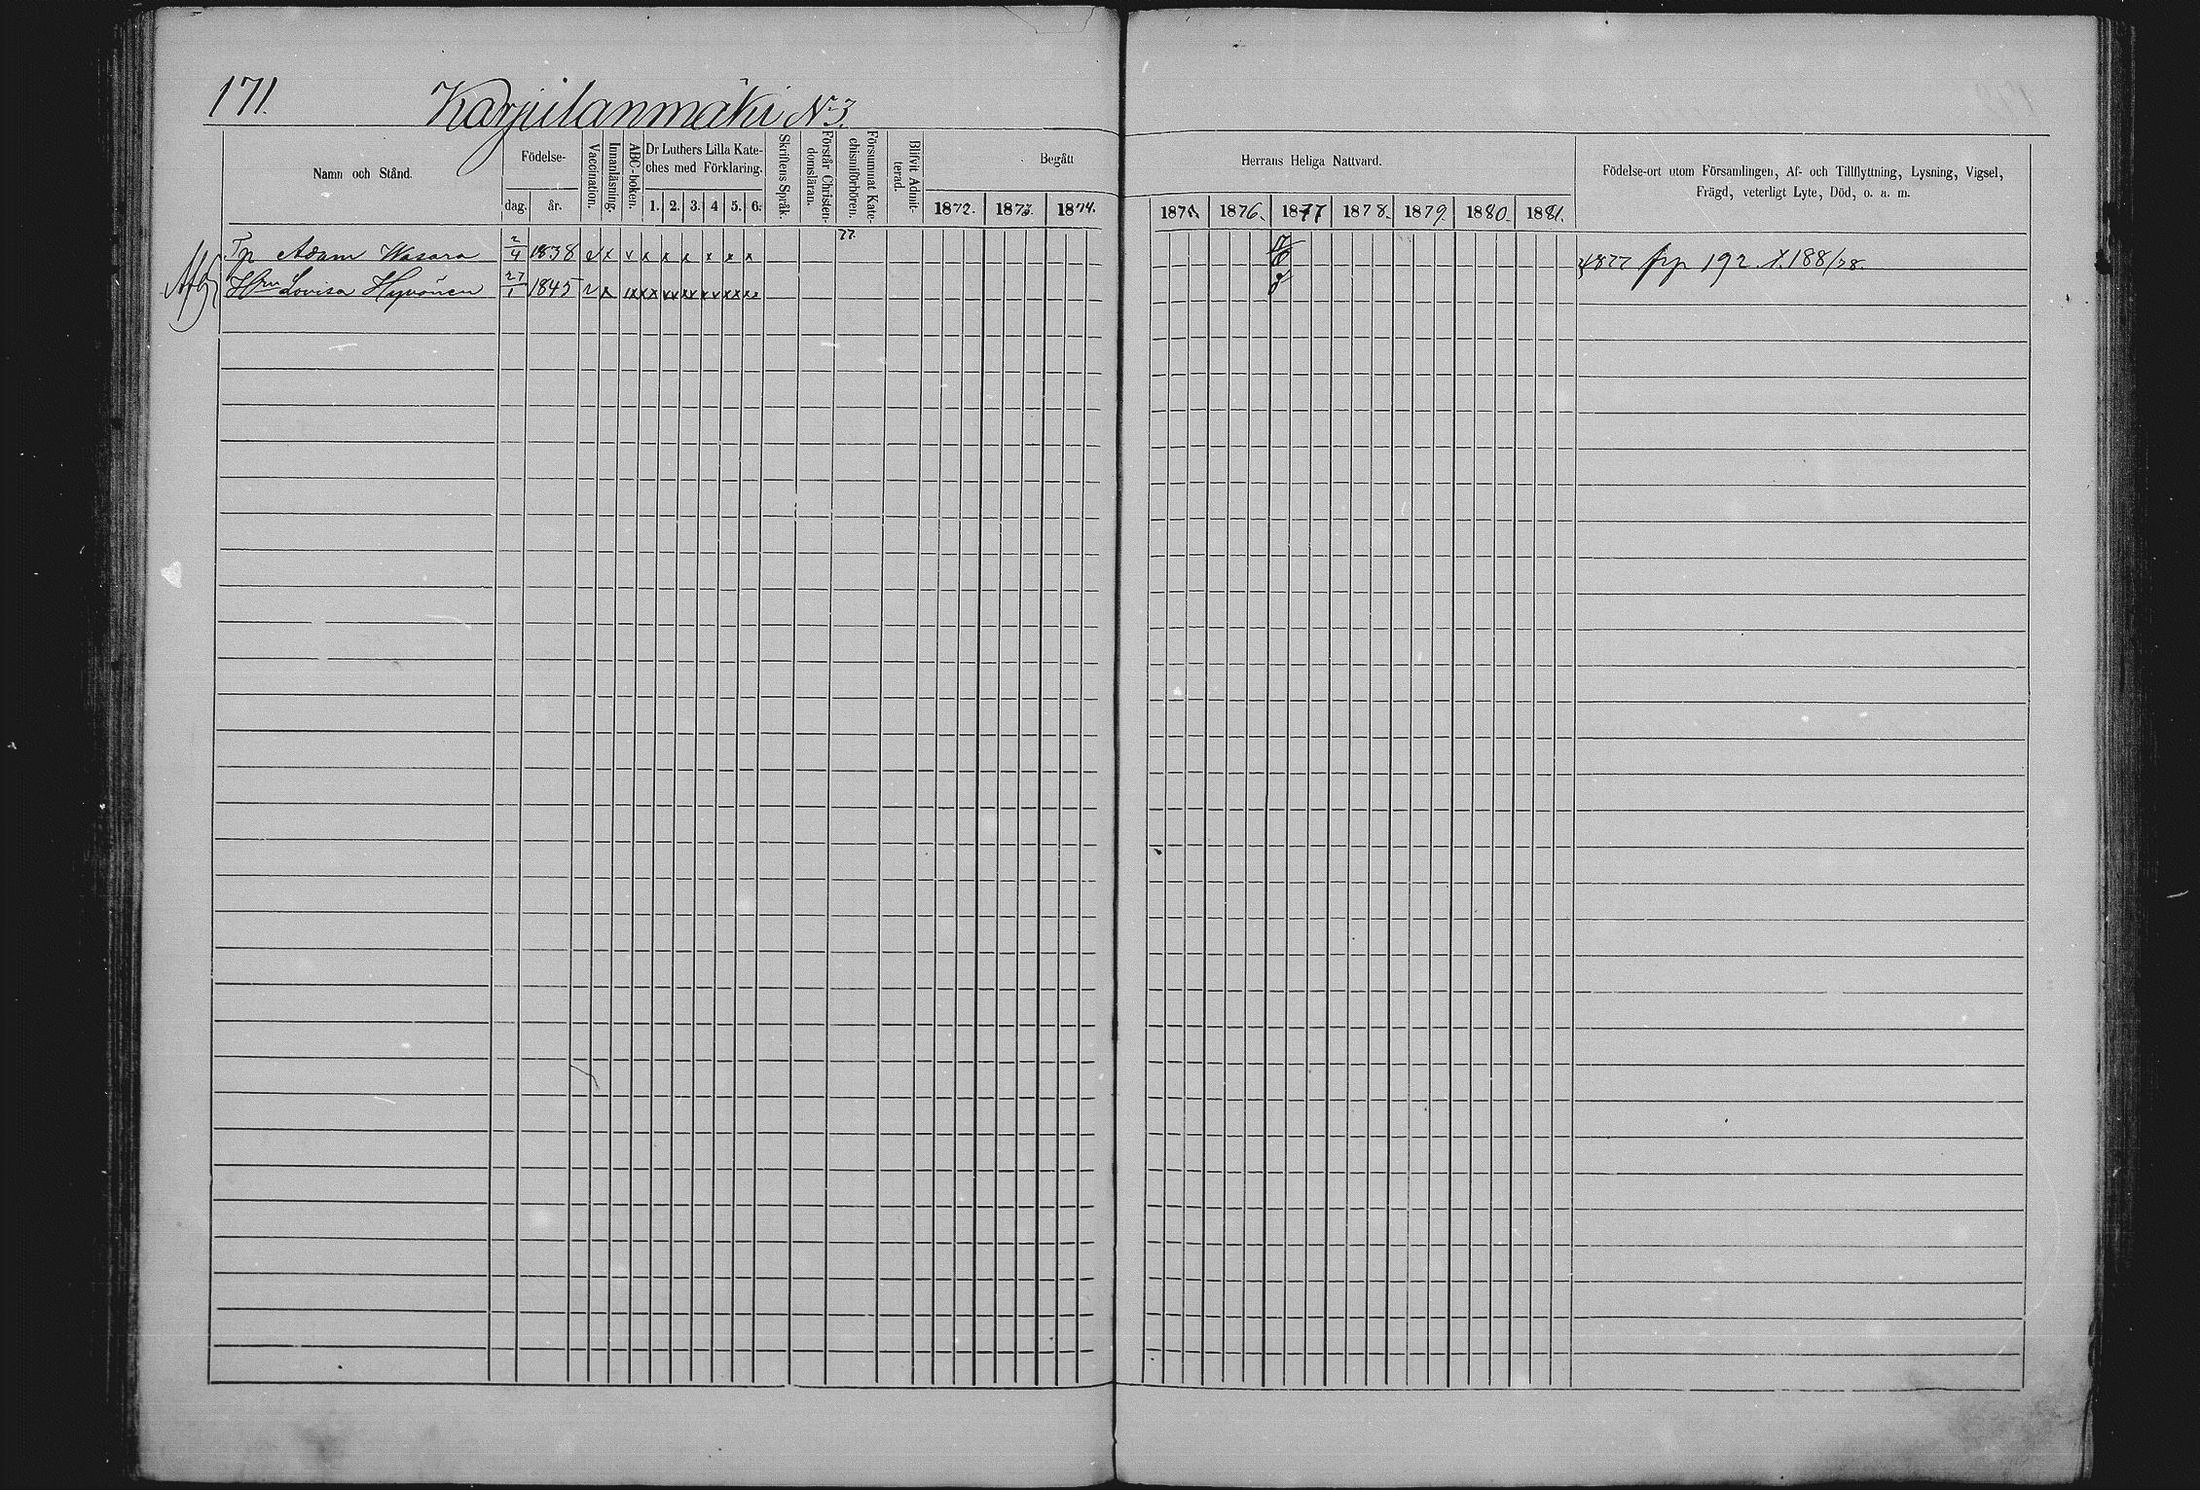 171. Karjulanmäki No 3.
Namn och Stånd.
Födelse-
dag. år.
Vaccination.
Innanläsning.
ABC-boken.
Dr Luthers Lilla Kate-
ches med Förklaring.
1. 2. 3. 4 5. 6.
Skriftens Språk.
Förstår Christen-
domsläran.
Försummat Kate-
chismiförhören.
Blifvit Admit-
terad.
Begått
1872. 1873. 1874.
Herrans Heliga Nattvard.
187 1876. 1877 1878. 1879. 1880. 1881.
Födelse-ort utom Församlingen, Af- och Tillflyttning, Lysning, Vigsel,
Frägd, veterligt Lyte, Död, o. a. m.
77
Tp Adam Wasara 2/4 1838 v x v x x x x x x 1877 frp 192. X. 188/78.
Hru Lovisa Hyvönen 27/1 1845 v x